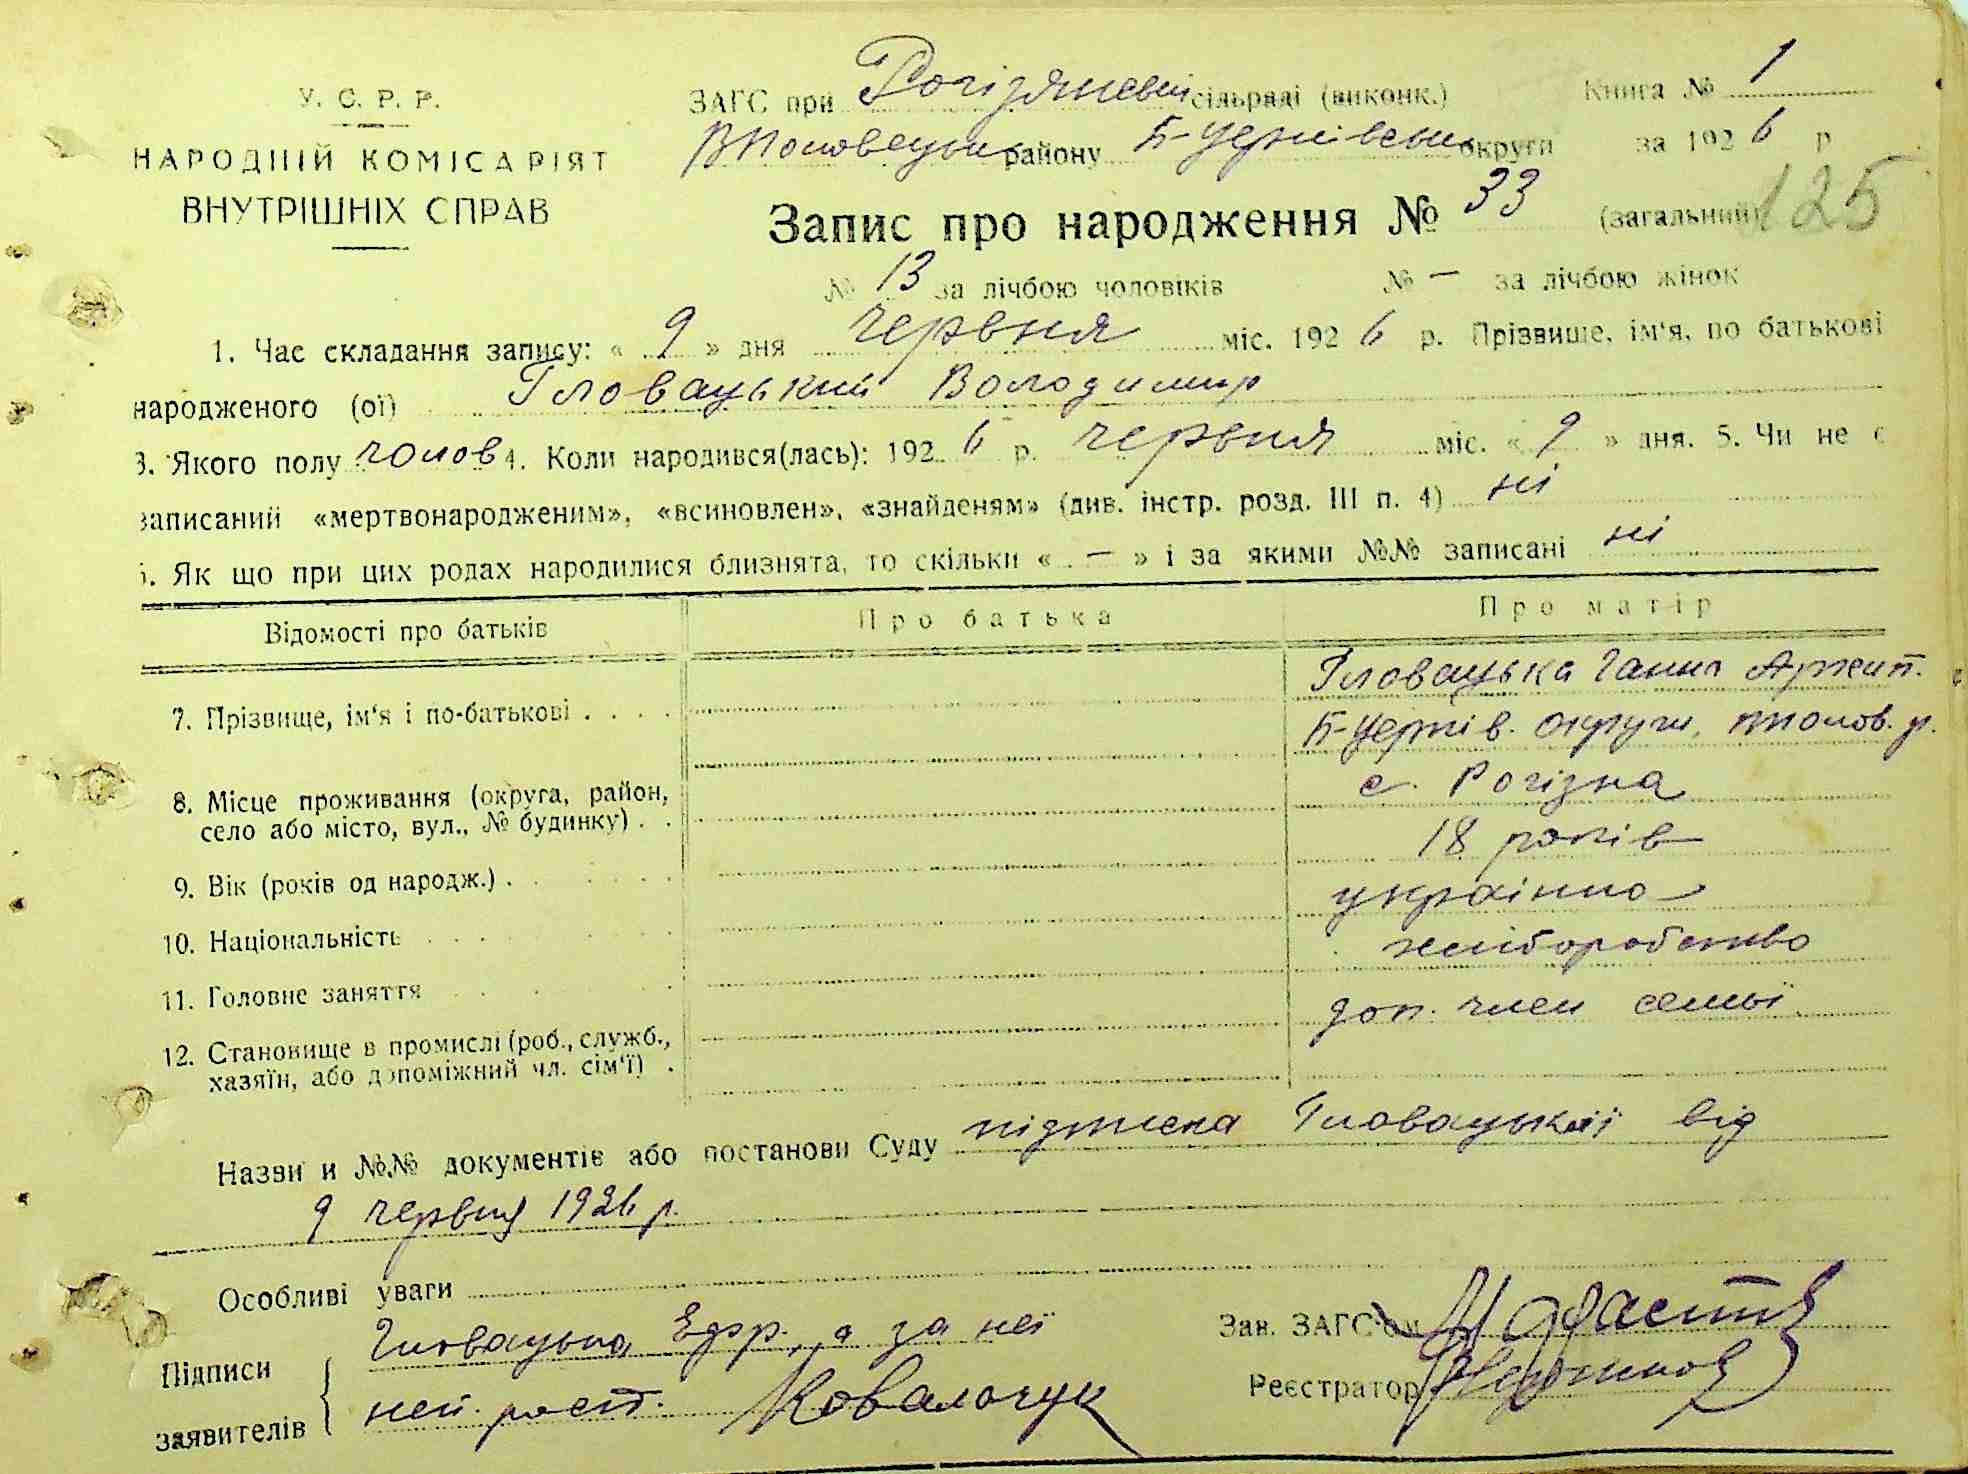 У. С. Р. Р.
НАРОДНІЙ КОМІСАРІЯТ
ВНУТРІШНІХ СПРАВ
ЗАГС при Рогізянській сільраді (виконк.) Книга № 1
району Б-Церківськ округи за 1926 р
Запис про народження № 33 (загальний) 125
№ 13 за лічбою чоловіків № — за лічбою жінок
1. Час складання запису: « 9 » дня червня міс. 1926 р. Прізвище, ім'я, по батькові
народженого (ої) Гловацький Володимир
3. Якого полу чолов 4. Коли народився(лась): 1926 р. червня міс. « 9 » дня. 5. Чи не є
записаний «мертвонародженим», «всиновлен», «знайденям» (див. інстр. розд. III п. 4) ні
6. Як що при цих родах народилися близнята, то скільки « — » і за якими №№ записані ні
Відомості про батьків Про батька Про матір
7. Прізвище, ім'я і по-батькові . . . . Гловацька Ганна
Б-Церків. округи, р.
8. Місце проживання (округа, район, с. Рогізна
село або місто, вул., № будинку) . .
9. Вік (років од народж.) . 18 років
10. Національність українка
11. Головне заняття хліборобство
12. Становище в промислі (роб., служб., доп. член семьї
хазяїн, або допоміжний чл. сім'ї) .
Назви и №№ документів або постанови Суду підписка Гловацької від
9 червня 1926 р.
Особливі уваги
Підписи заявителів Гловацька Ефр., а за неї
Ковальчук
Зав. ЗАГС-ом
Реєстратор